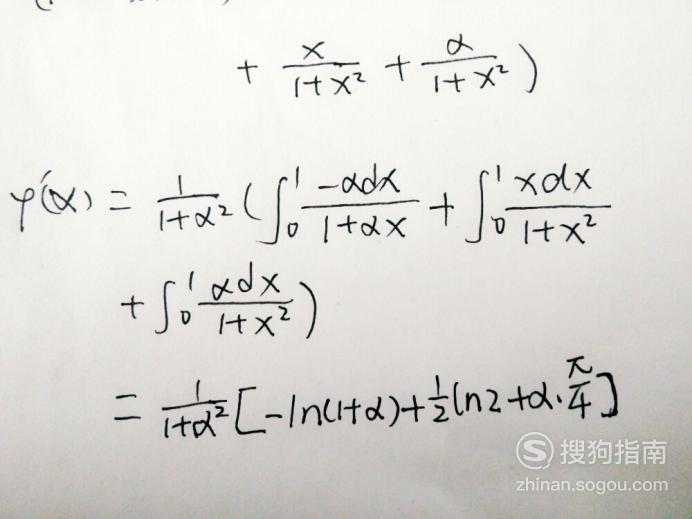 + x/(1+x²) + α/(1+x²) )
φ'(α) = 1/(1+α²) ( ∫₀¹ -αdx/(1+αx) + ∫₀¹ xdx/(1+x²)
+ ∫₀¹ αdx/(1+x²) )
= 1/(1+α²) [ -ln(1+α) + 1/2 ln2 + α·π/4 ]
搜狗指南
zhinan.sogou.com